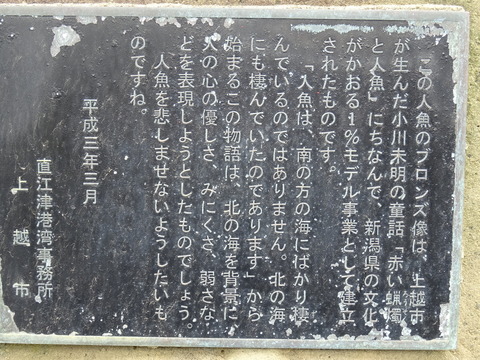 この人魚のブロンズ像は、上越市
が生んだ小川未明の童話「赤い蝋燭
と人魚」にちなんで、新潟県の文化
がかおる1%モデル事業として建立
されたものです。
「人魚は、南の方の海にばかり棲
んでいるのではありません。北の海
にも棲んでいたのであります」から
始まるこの物語は、北の海を背景に
人の心の優しさ、みにくさ、弱さな
どを表現しようとしたものでしょう。
人魚を悲しませないようしたいも
のですね。
平成三年三月
直江津港湾事務所
上越市